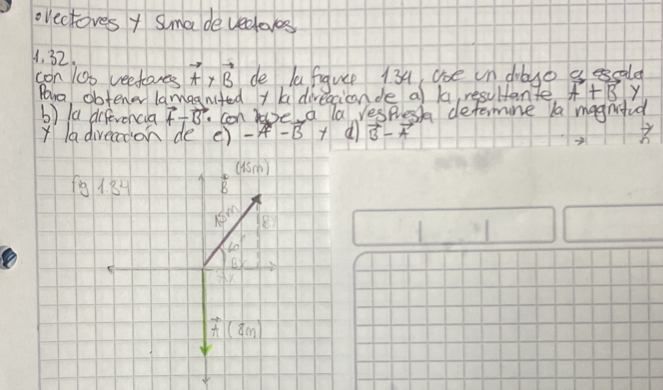 vectores y suma de vectores
1.32.
con los vectores A y B de la figura 1.34, use un dibujo a escala
Para obtener la magnitud y la dirección de a) la resultante A + B y
b) la diferencia A - B. con base a la respuesta determine la magnitud
y la dirección de c) -A - B y d) B - A
fig 1.34
B (15m)
15m
Bx
A (8m)